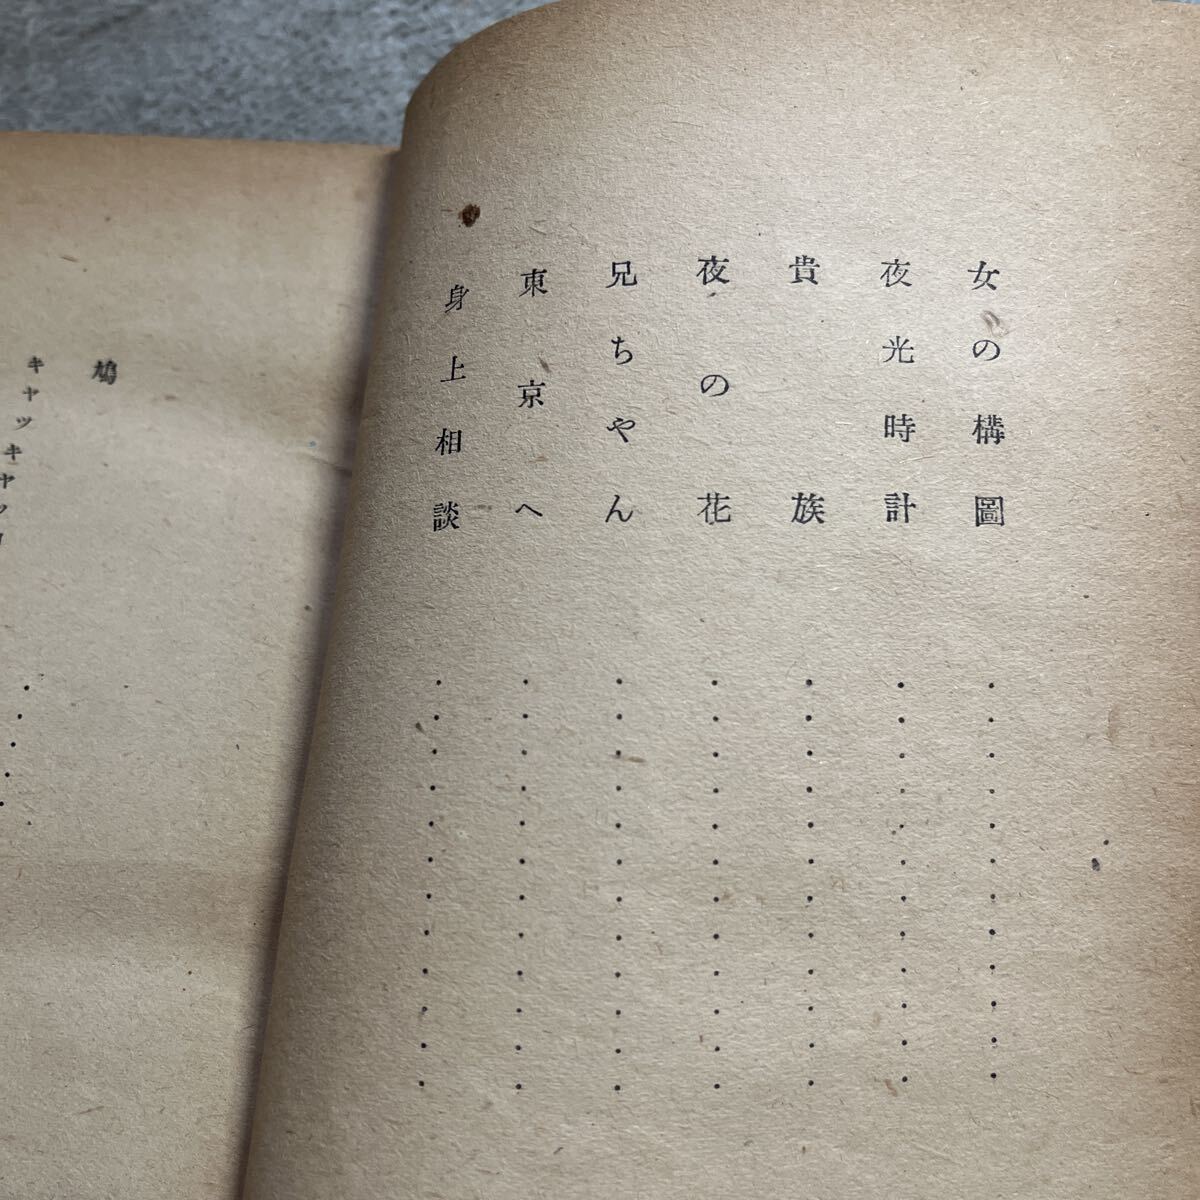 女の構圖
夜光時計
貴族
夜の花
兄ちやん
東京へ
身上相談
鳩
キヤツキヤツ